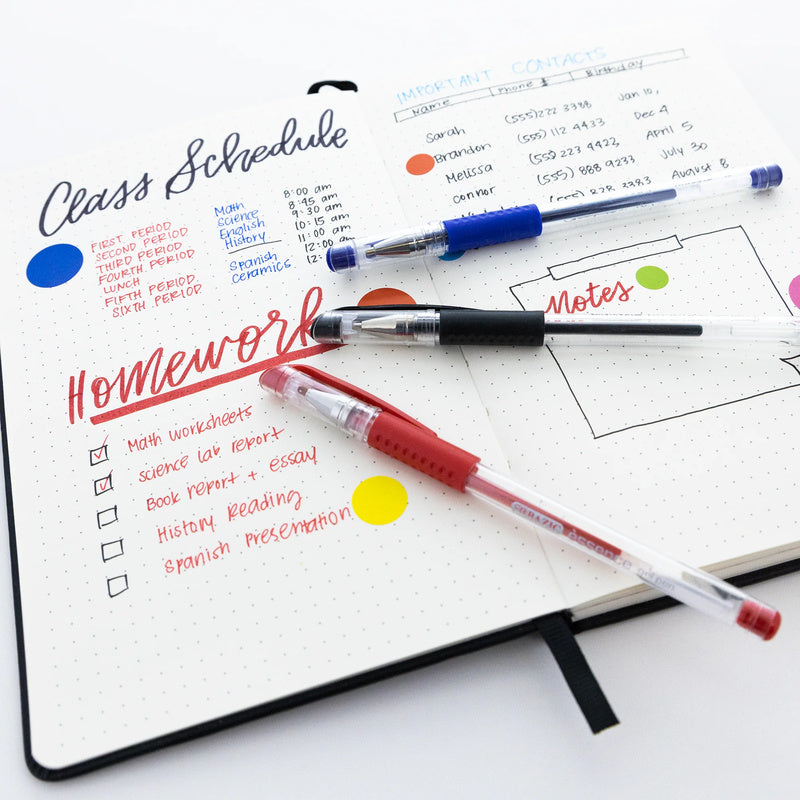 Class Schedule
FIRST PERIOD
SECOND PERIOD
THIRD PERIOD
FOURTH PERIOD
LUNCH
FIFTH PERIOD
SIXTH PERIOD
Math
Science
English
History
Spanish
Ceramics
8:00 am
8:45 am
9:30 am
10:15 am
11:00 am
12:00
12:
Homework
Math worksheets
science lab report
Book report + essay
History Reading
Spanish Presentation
IMPORTANT CONTACTS
Name Phone # Birthday
Sarah (555)222 3388 Jan 10,
Brandon (555) 112 4433 Dec 4
Melissa (555) 223 4422 April 5
connor (555) 888 9233 July 30
(555) 828 3383 August 8
Notes
essence gel pen